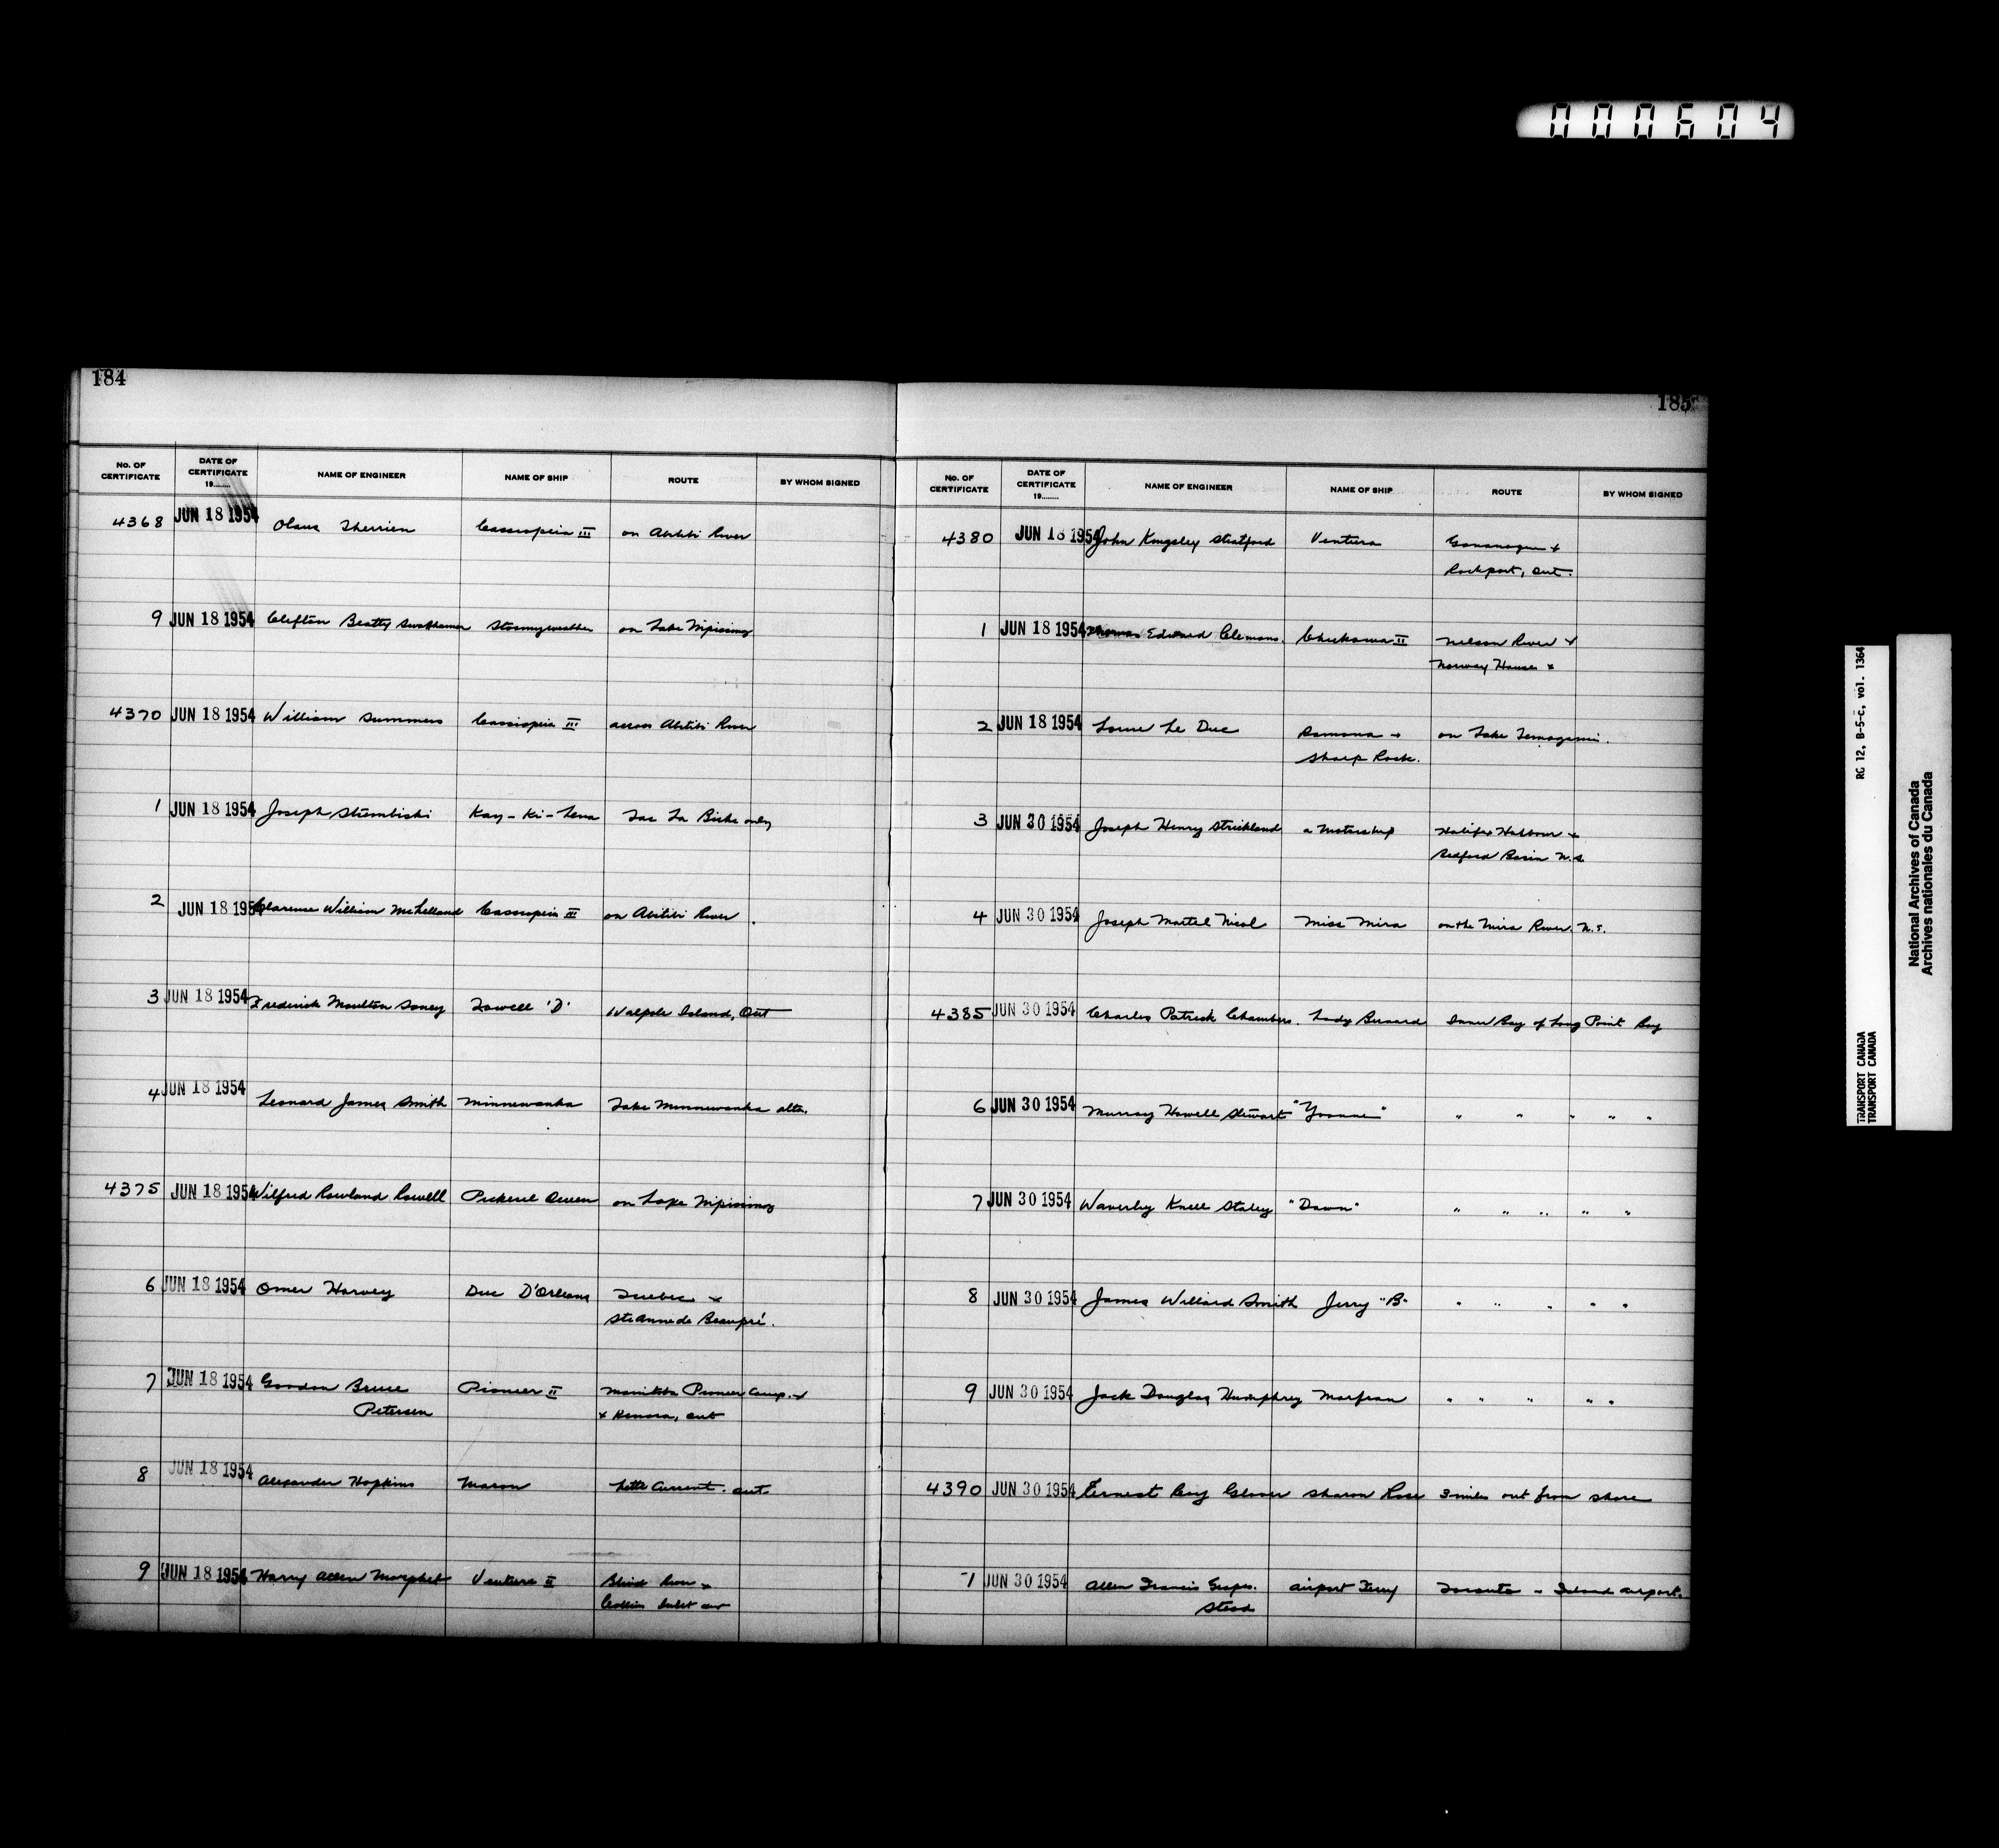 000604
184
No. OF CERTIFICATE DATE OF CERTIFICATE 19........ NAME OF ENGINEER NAME OF SHIP ROUTE BY WHOM SIGNED
4368 JUN 18 1954 Olaus Therrien Cassiopeia III on Abitibi River
9 JUN 18 1954 Clifton Beatty Stormyweather on Lake Nipissing
4370 JUN 18 1954 William Summers Cassiopeia III across Abitibi River
1 JUN 18 1954 Joseph Kay-Ki-Lena Lac La Biche only
2 JUN 18 1954 Clarence William McLelland Cassiopeia III on Abitibi River.
3 JUN 18 1954 Frederick Moulton Soney Lowell 'D' Walpole Island, Ont
4 JUN 18 1954 Leonard James Smith Minnewanka Lake Minnewanka alta.
4375 JUN 18 1954 Wilfred Rowland Rowell Pickerel Queen on Lake Nipissing
6 JUN 18 1954 Omer Harvey Duc D'Orleans Quebec +
Ste Anne de Beaupré.
7 JUN 18 1954 Gordon Bruce Pioneer II Manitoba Pioneer Camp. +
Petersen + Kenora, ont
8 JUN 18 1954 Alexander Hopkins Maron Little Current. ont.
9 JUN 18 1954 Harry Allen Morphet Venture II Blind River +
Collins Inlet ont
185
No. OF CERTIFICATE DATE OF CERTIFICATE 19........ NAME OF ENGINEER NAME OF SHIP ROUTE BY WHOM SIGNED
4380 JUN 18 1954 John Kingsley Stratford Ventura Gananoque +
Rockport, Ont.
1 JUN 18 1954 Thomas Edward Clemons. Chickama II Nelson River +
Norway House
2 JUN 18 1954 Lorne Le Duc Ramona + on Lake Temagami.
Sharp Rock.
3 JUN 30 1954 Joseph Henry Strickland a Motorship Halifax Harbour +
Bedford Basin N.S.
4 JUN 30 1954 Joseph Martel Nicol Miss Mira on the Mira River. N.S.
4385 JUN 30 1954 Charles Patrick Chambers. Lady Bernard Inner Bay of Long Point Bay
6 JUN 30 1954 Murray Howell Stewart "Yvonne" " " " " "
7 JUN 30 1954 Waverley Knell Staley "Dawn" " " " " "
8 JUN 30 1954 James Willard Smith Jerry "B" " " " " "
9 JUN 30 1954 Jack Douglas Humphrey Marfran " " " " "
4390 JUN 30 1954 Ernest Guy Glover Sharon Rose 3 miles out from shore
1 JUN 30 1954 Allen Francis Grapes. Airport Ferry Toronto - Island airport.
stead
RG 12, B-5-C, vol. 1364
TRANSPORT CANADA
TRANSPORT CANADA
National Archives of Canada
Archives nationales du Canada